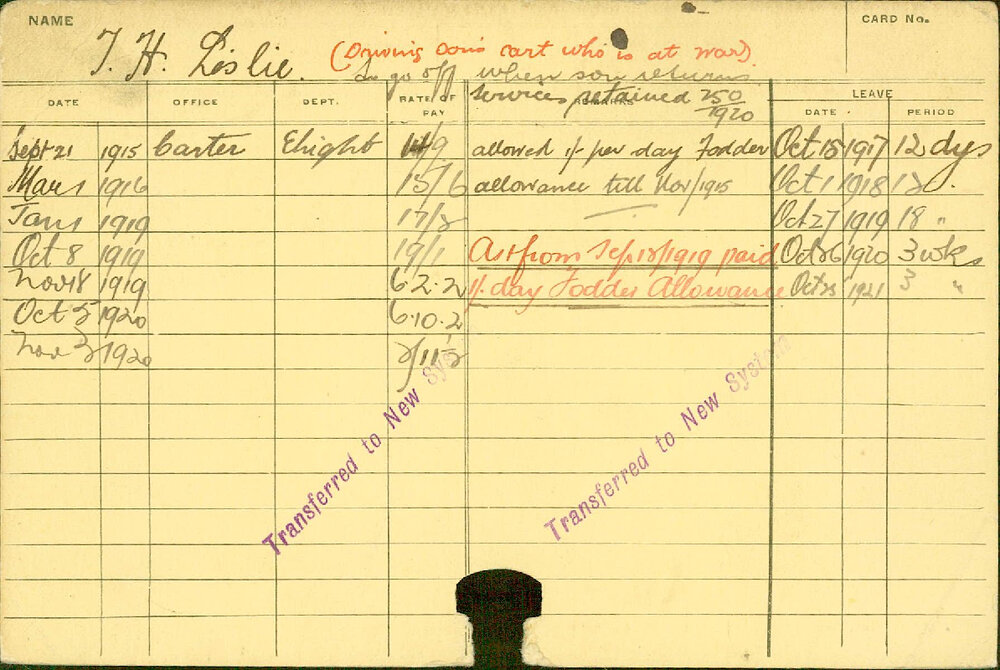 NAME
CARD No.
T. H. Leslie. (Driving son's cart who is at war)
To go off when son returns
services retained 250/1920
DATE OFFICE DEPT. RATE OF PAY REMARKS LEAVE
DATE PERIOD
Sept 21 1915 Carter Ehight 14/9 allowed 1/- per day Fodder Oct 18 1917 12 dys
Mar 1 1916 15/6 allowance till Nov/1915 Oct 1 1918 12 "
Jan 1 1919 17/2 Oct 27 1919 18 "
Oct 8 1919 19/1 As from Sep 18/1919 paid Oct 26 1920 3 wks
Nov 18 1919 6.2.2 1/- day Fodder Allowance Oct 25 1921 3 "
Oct 5 1920 6.10.2
Nov 3 1920
Transferred to New System
Transferred to New System